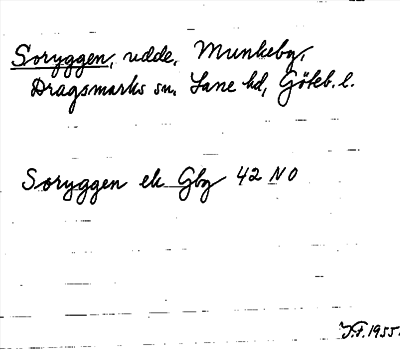 Soryggen, udde, Munkeby,
Dragsmarks sn, Lane hd, Göteb. l.
Soryggen ek Gbg 42 NO
J.F. 1955.